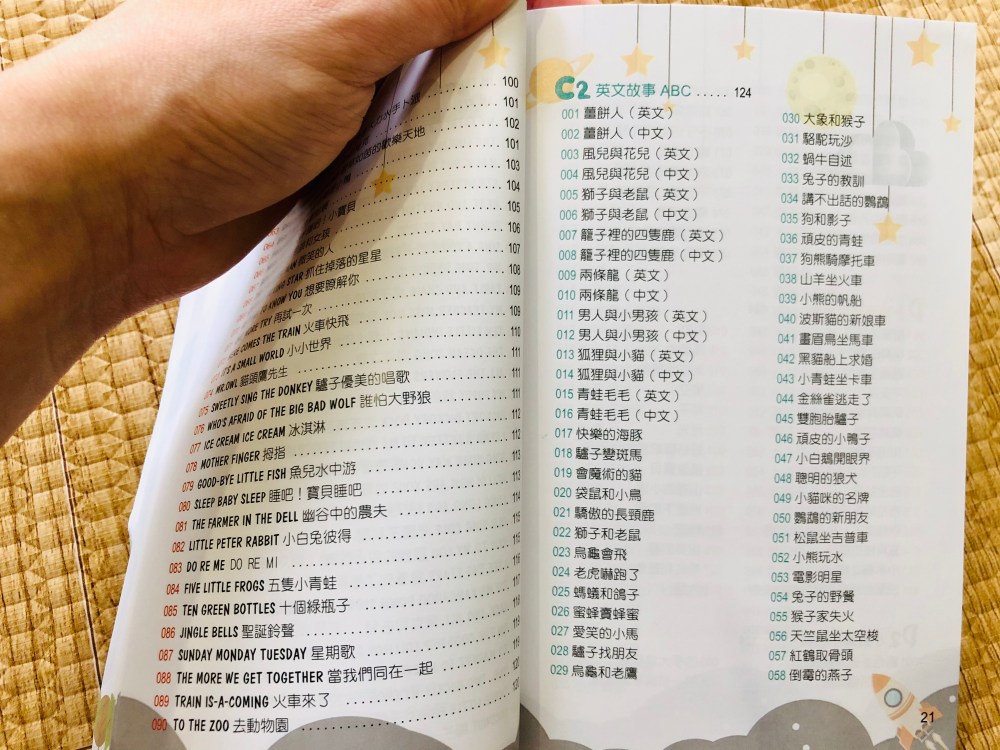 100
101
102
的歡樂天地
101
103
104
！小寶貝 105
106
的人 107
STAR 抓住掉落的星星 108
KNOW YOU 想要瞭解你 109
TRY 再試一次 109
COMES THE TRAIN 火車快飛 110
A SMALL WORLD 小小世界 111
074 MR.OWL 貓頭鷹先生 111
075 SWEETLY SING THE DONKEY 驢子優美的唱歌 111
076 WHO'S AFRAID OF THE BIG BAD WOLF 誰怕大野狼 112
077 ICE CREAM ICE CREAM 冰淇淋 112
078 MOTHER FINGER 拇指 113
079 GOOD-BYE LITTLE FISH 魚兒水中游 113
080 SLEEP BABY SLEEP 睡吧！寶貝睡吧 114
081 THE FARMER IN THE DELL 幽谷中的農夫 115
082 LITTLE PETER RABBIT 小白兔彼得
083 DO RE ME DO RE MI
084 FIVE LITTLE FROGS 五隻小青蛙
085 TEN GREEN BOTTLES 十個綠瓶子
086 JINGLE BELLS 聖誕鈴聲
087 SUNDAY MONDAY TUESDAY 星期歌
088 THE MORE WE GET TOGETHER 當我們同在一起
089 TRAIN IS-A-COMING 火車來了
090 TO THE ZOO 去動物園
C2 英文故事 ABC ..... 124
001 薑餅人（英文）
002 薑餅人（中文）
003 風兒與花兒（英文）
004 風兒與花兒（中文）
005 獅子與老鼠（英文）
006 獅子與老鼠（中文）
007 籠子裡的四隻鹿（英文）
008 籠子裡的四隻鹿（中文）
009 兩條龍（英文）
010 兩條龍（中文）
011 男人與小男孩（英文）
012 男人與小男孩（中文）
013 狐狸與小貓（英文）
014 狐狸與小貓（中文）
015 青蛙毛毛（英文）
016 青蛙毛毛（中文）
017 快樂的海豚
018 驢子變斑馬
019 會魔術的貓
020 袋鼠和小鳥
021 驕傲的長頸鹿
022 獅子和老鼠
023 烏龜會飛
024 老虎嚇跑了
025 螞蟻和鴿子
026 蜜蜂賣蜂蜜
027 愛笑的小馬
028 驢子找朋友
029 烏龜和老鷹
030 大象和猴子
031 駱駝玩沙
032 蝸牛自述
033 兔子的教訓
034 講不出話的鸚鵡
035 狗和影子
036 頑皮的青蛙
037 狗熊騎摩托車
038 山羊坐火車
039 小熊的帆船
040 波斯貓的新娘車
041 畫眉鳥坐馬車
042 黑貓船上求婚
043 小青蛙坐卡車
044 金絲雀逃走了
045 雙胞胎驢子
046 頑皮的小鴨子
047 小白鵝開眼界
048 聰明的狼犬
049 小貓咪的名牌
050 鸚鵡的新朋友
051 松鼠坐吉普車
052 小熊玩水
053 電影明星
054 兔子的野餐
055 猴子家失火
056 天竺鼠坐太空梭
057 紅鶴取骨頭
058 倒霉的燕子
21